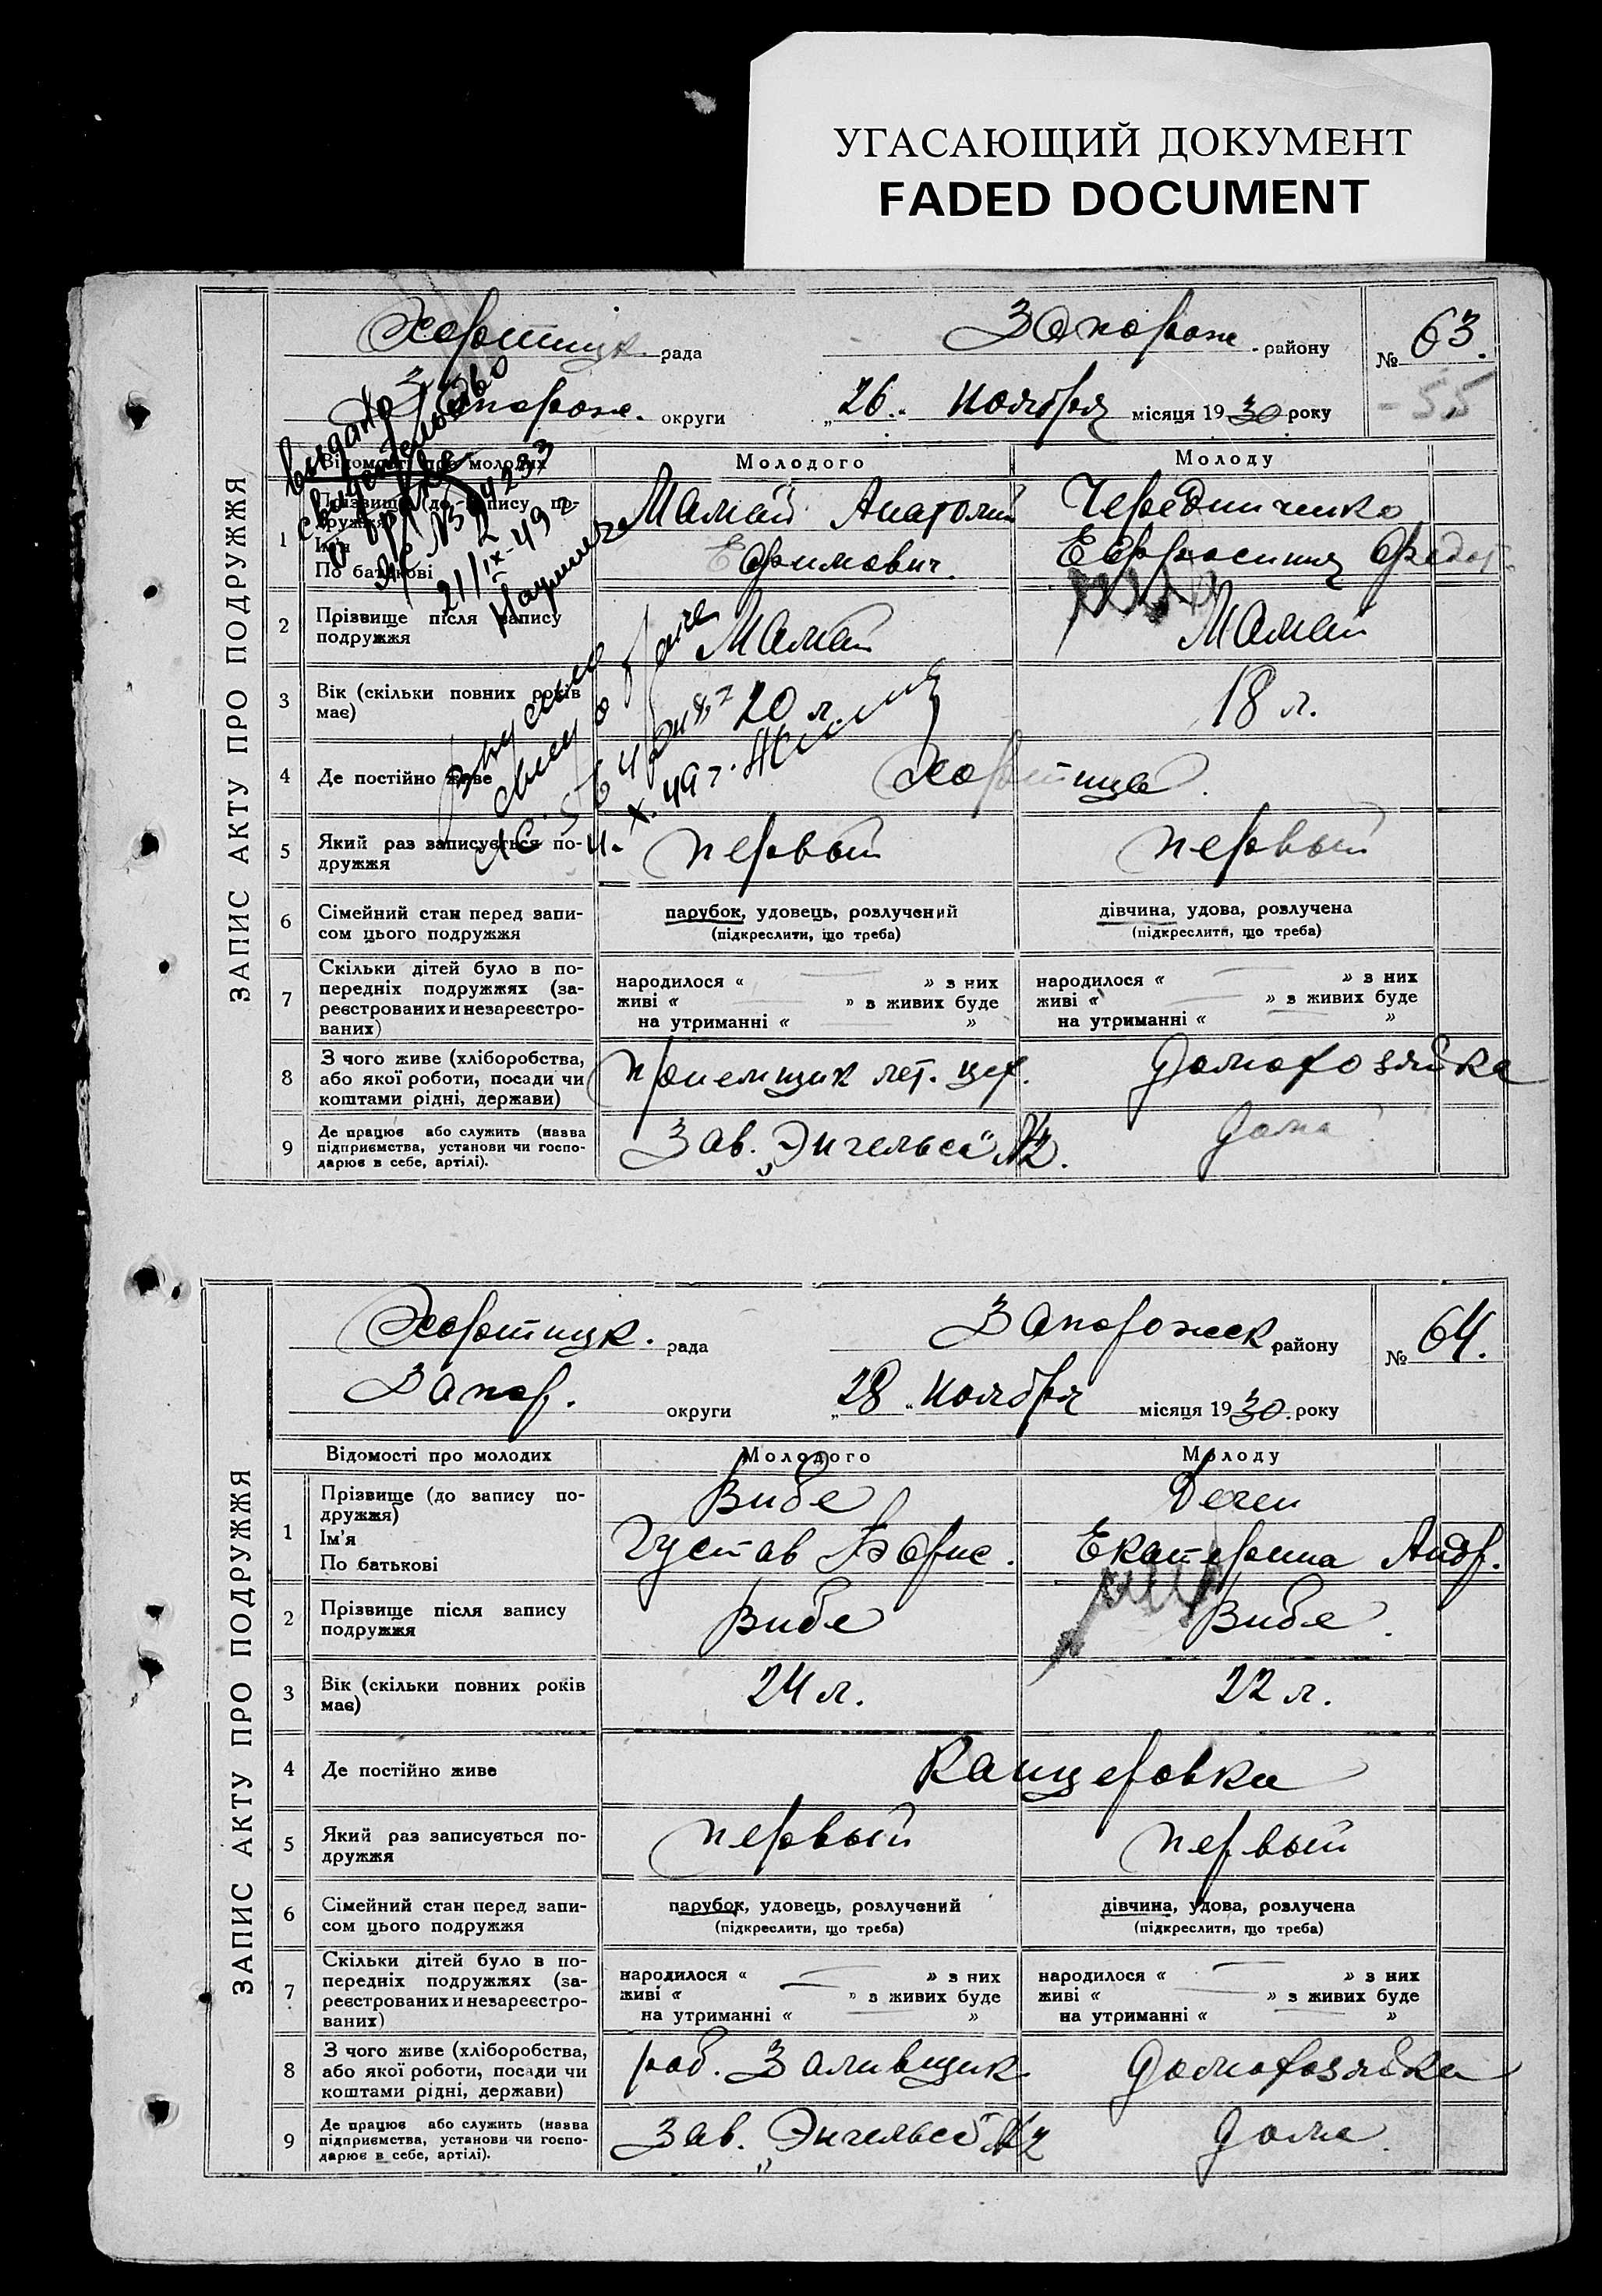 УГАСАЮЩИЙ ДОКУМЕНТ
FADED DOCUMENT
ЗАПИС АКТУ ПРО ПОДРУЖЖЯ
Хортицк. рада Запорож. району № 63.
Запорож. округи „26„ Ноября місяця 1930 року - 55
Відомості про молодих Молодого Молоду
1 Прізвище (до запису по-
дружжя)
Ім'я
По батькові
Мамай Анатолий Чередниченко
Ефимович. Ефросиния Федот.
видано
свидетельство
о браке
21/IX-49 г.
2 Прізвище після запису
подружжя
Мамай Мамай
3 Вік (скільки повних років
має)
20 л. 18 л.
4 Де постійно живе Хортица.
X. 49 г.
5 Який раз записується по-
дружжя
первый первый
6 Сімейний стан перед запи-
сом цього подружжя
парубок, удовець, розлучений дівчина, удова, розлучена
(підкреслити, що треба) (підкреслити, що треба)
7 Скільки дітей було в по-
передніх подружжях (за-
реєстрованих и незареєстро-
ваних)
народилося « — » з них народилося « — » з них
живі « — » з живих буде живі « — » з живих буде
на утриманні « — » на утриманні « — »
8 З чого живе (хліборобства,
або якої роботи, посади чи
коштами рідні, держави)
приемщик лет. цех. домохозяйка
9 Де працює або служить (назва
підприємства, установи чи госпо-
дарює в себе, артілі).
Зав. „Энгельса" №2. дома.
ЗАПИС АКТУ ПРО ПОДРУЖЖЯ
Хортицк. рада Запорожск району № 64.
Запор. округи „28„ Ноября місяця 1930. року
Відомості про молодих Молодого Молоду
1 Прізвище (до запису по-
дружжя)
Ім'я
По батькові
Вибе
Густав Борис. Екатерина Андр.
2 Прізвище після запису
подружжя
Вибе Вибе.
3 Вік (скільки повних років
має)
24 л. 22 л.
4 Де постійно живе Канцеровка
5 Який раз записується по-
дружжя
первый первый
6 Сімейний стан перед запи-
сом цього подружжя
парубок, удовець, розлучений дівчина, удова, розлучена
(підкреслити, що треба) (підкреслити, що треба)
7 Скільки дітей було в по-
передніх подружжях (за-
реєстрованих и незареєстро-
ваних)
народилося « — » з них народилося « — » з них
живі « — » з живих буде живі « — » з живих буде
на утриманні « » на утриманні « »
8 З чого живе (хліборобства,
або якої роботи, посади чи
коштами рідні, держави)
раб. Заливщик домохозяйка
9 Де працює або служить (назва
підприємства, установи чи госпо-
дарює в себе, артілі).
Зав. „Энгельса" №2 дома.